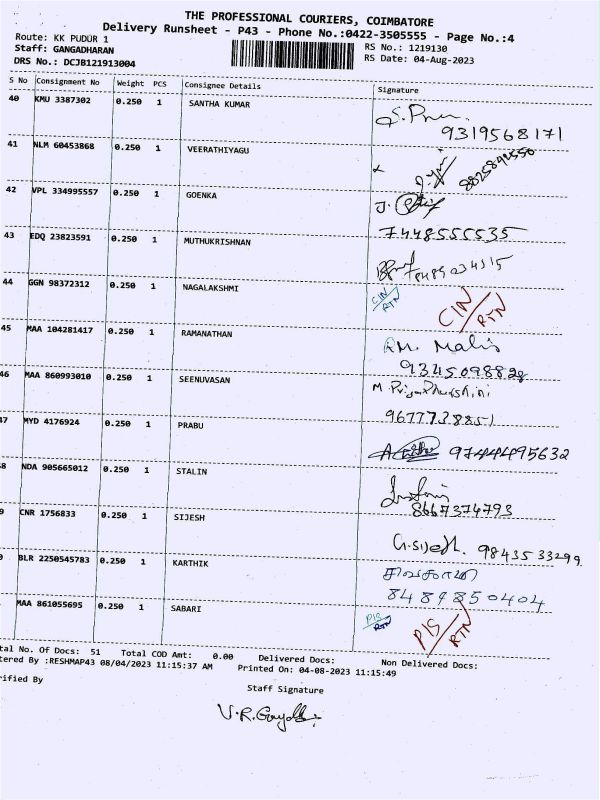 THE PROFESSIONAL COURIERS, COIMBATORE
Delivery Runsheet - P43 - Phone No.:0422-3505555 - Page No.:4
Route: KK PUDUR 1
RS No.: 1219130
Staff: GANGADHARAN
RS Date: 04-Aug-2023
DRS No.: DCJB121913004
S No Consignment No Weight PCS Consignee Details Signature
40 KMU 3387302 0.250 1 SANTHA KUMAR
9319568171
41 NLM 60453868 0.250 1 VEERATHIYAGU
42 VPL 334995557 0.250 1 GOENKA
7448555535
43 EDQ 23823591 0.250 1 MUTHUKRISHNAN
44 GGN 98372312 0.250 1 NAGALAKSHMI CIN/RTN CIN/RTN
45 MAA 104281417 0.250 1 RAMANATHAN
9345098828
46 MAA 860993010 0.250 1 SEENUVASAN M. Priyadharshini
9677738851
47 MYD 4176924 0.250 1 PRABU
9744495632
8 NDA 905665012 0.250 1 STALIN
8667374793
9 CNR 1756833 0.250 1 SIJESH G.Sijesh. 9843533299
BLR 2250545783 0.250 1 KARTHIK சிவகாமி
8489850404
MAA 861055695 0.250 1 SABARI PIS/RTN PIS/RTN
tal No. Of Docs: 51 Total COD Amt: 0.00 Delivered Docs: Non Delivered Docs:
tered By :RESHMAP43 08/04/2023 11:15:37 AM Printed On: 04-08-2023 11:15:49
rified By
Staff Signature